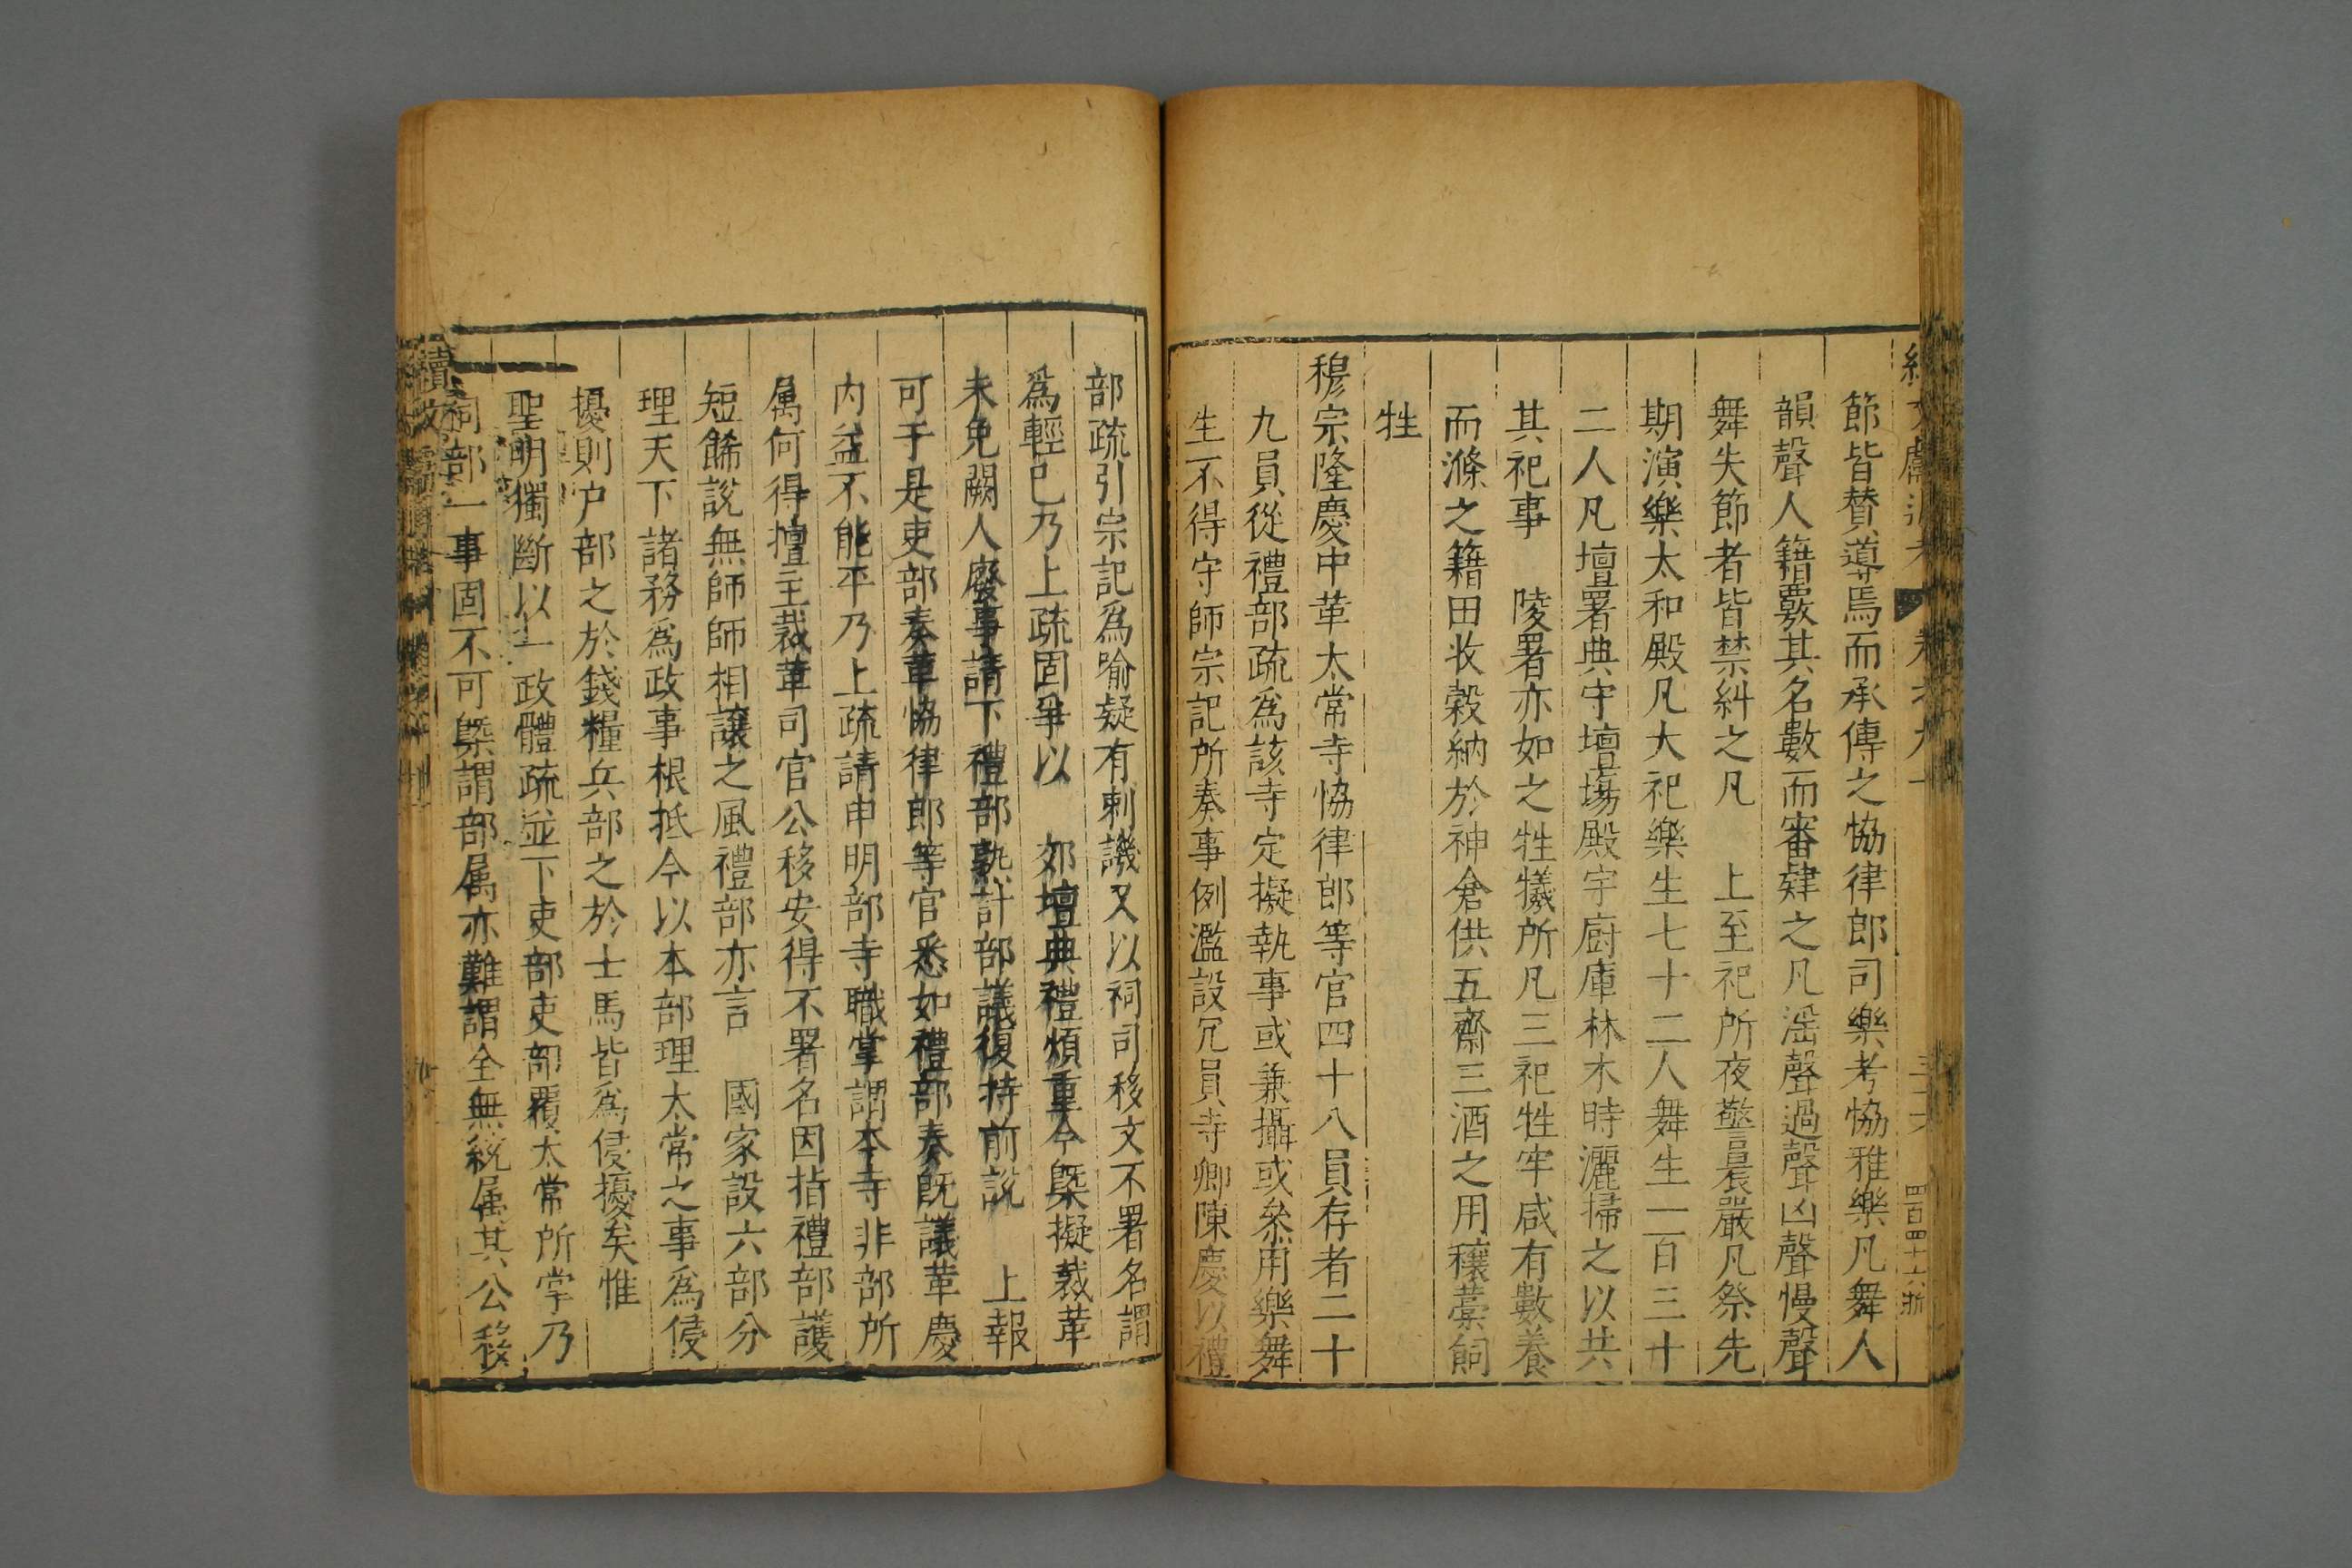 節皆賛導焉而承傳之恊律郎司樂考恊雅樂凡舞人
韻聲人籍覈其名數而審肄之凡滛聲過聲凶聲慢聲
舞失節者皆禁糾之凡 上至祀所夜警晨嚴凡祭先
期演樂太和殿凡大祀樂生七十二人舞生一百三十
二人凡壇署典守壇場殿宇厨庫林木時灑掃之以共
其祀事 陵署亦如之牲犧所凡三祀牲牢咸有數養
而滌之籍田收榖納於神倉供五齋三酒之用穰藁飼
牲
穆宗隆慶中革太常寺恊律郎等官四十八員存者二十
九員從禮部疏為該寺定擬執事或兼攝或叅用樂舞
生不得守師宗記所奏事例濫設冗員寺卿陳慶以禮
部疏引宗記爲喻疑有刺譏又以祠司移文不署名謂
爲輕巳乃上疏固爭以 郊壇典禮煩重今槩擬裁革
未免闕人廢事請下禮部熟計部議復持前説 上報
可于是吏部奏革恊律郎等官悉如禮部奏旣議革慶
内益不能平乃上疏請申明部寺職掌謂本寺非部所
属何得擅主裁革司官公移安得不署名因指禮部護
短餙說無師師相讓之風禮部亦言 國家設六部分
理天下諸務爲政事根抵今以本部理太常之事爲侵
擾則户部之於錢糧兵部之於士馬皆爲侵擾矣惟
聖明獨斷以一政體疏並下吏部吏部覆太常所掌乃
祠部一事固不可槩謂部属亦難謂全無統属其公移